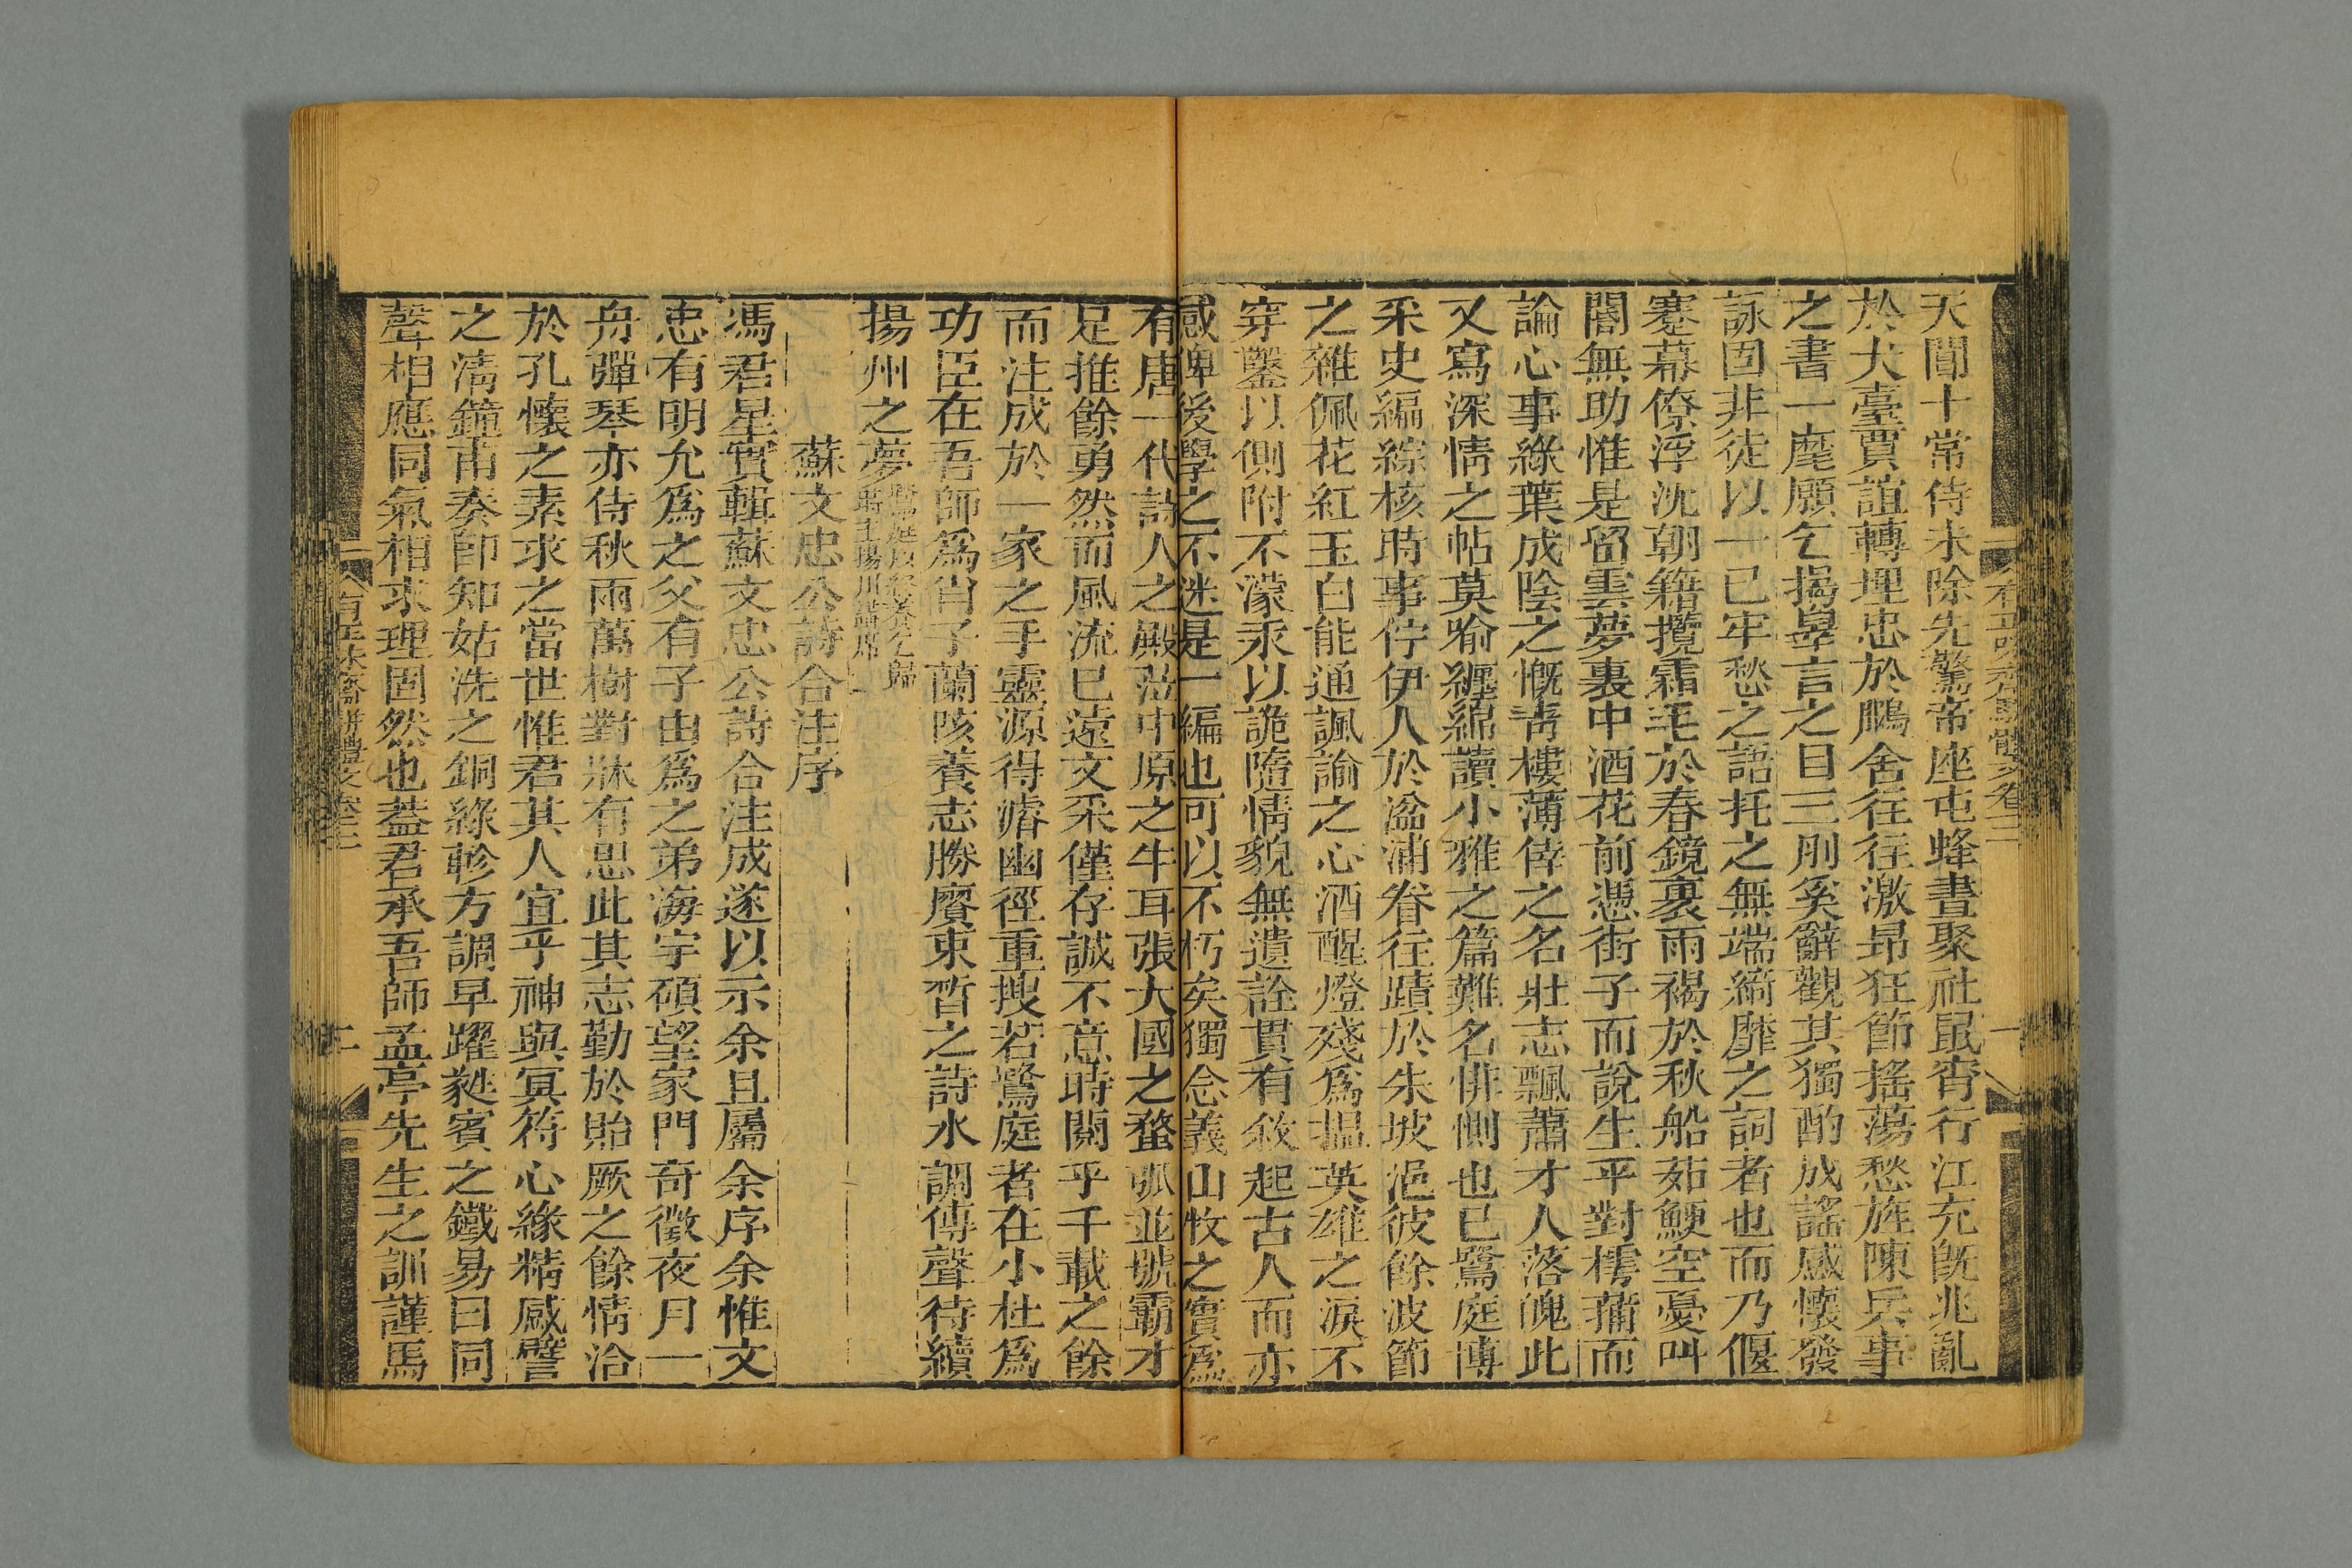 天閽十常侍未除先驚帝座屯蜂晝聚社鼠宵行江充旣兆亂
於犬臺賈誼轉埋忠於鵩舍往往激昻狂節搖蕩愁旌陳兵事
之書一麾願乞揭辠言之目三刖奚辭觀其獨酌成謠感懷發
詠固非徒以一已牢愁之語托之無端綺靡之詞者也而乃偃
蹇幕僚浮沈朝籍攬霜毛於春鏡裏雨褐於秋船茹鯁空憂叫
閽無助惟是留雲夢裏中酒花前憑街子而說生平對樗蒲而
論心事綠葉成陰之慨靑樓薄倖之名壯志飄蕭才人落魄此
又寫深情之帖莫喻纏綿讀小雅之篇難名悱惻也已鷺庭博
采史編綜核時事佇伊人於湓浦眷往蹟於朱坡浥彼餘波節
之雜佩花紅玉白能通諷諭之心酒醒燈殘爲搵英雄之淚不
穿鑿以側附不濛汞以詭隨情貌無遺詮貫有敘起古人而亦
感俾後學之不迷是一編也可以不朽矣獨念義山牧之實爲
有唐一代詩人之殿蒞中原之牛耳張大國之蝥弧並號霸才
足推餘勇然而風流已遠文采僅存誠不意時關乎千載之餘
而注成於一家之手靈源得濬幽徑重搜若鷺庭者在小杜爲
功臣在吾師爲肖子蘭陔養志勝賡束晳之詩水調傳聲待續
揚州之夢鷺庭以終養乞歸時主揚州講席
蘇文忠公詩合注序
馮君星實輯蘇文忠公詩合注成遂以示余且屬余序余惟文
忠有明允爲之父有子由爲之弟海宇碩望家門奇徵夜月一
舟彈琴亦侍秋雨萬樹對牀有思此其志勤於貽厥之餘情洽
於孔懷之素求之當世惟君其人宜乎神與冥符心緣精感譬
之淸鐘甫奏卽知姑洗之銅綠軫方調早躍蕤賓之鐵易曰同
聲相應同氣相求理固然也蓋君承吾師孟亭先生之訓謹馬
有正味齋駢體文卷三